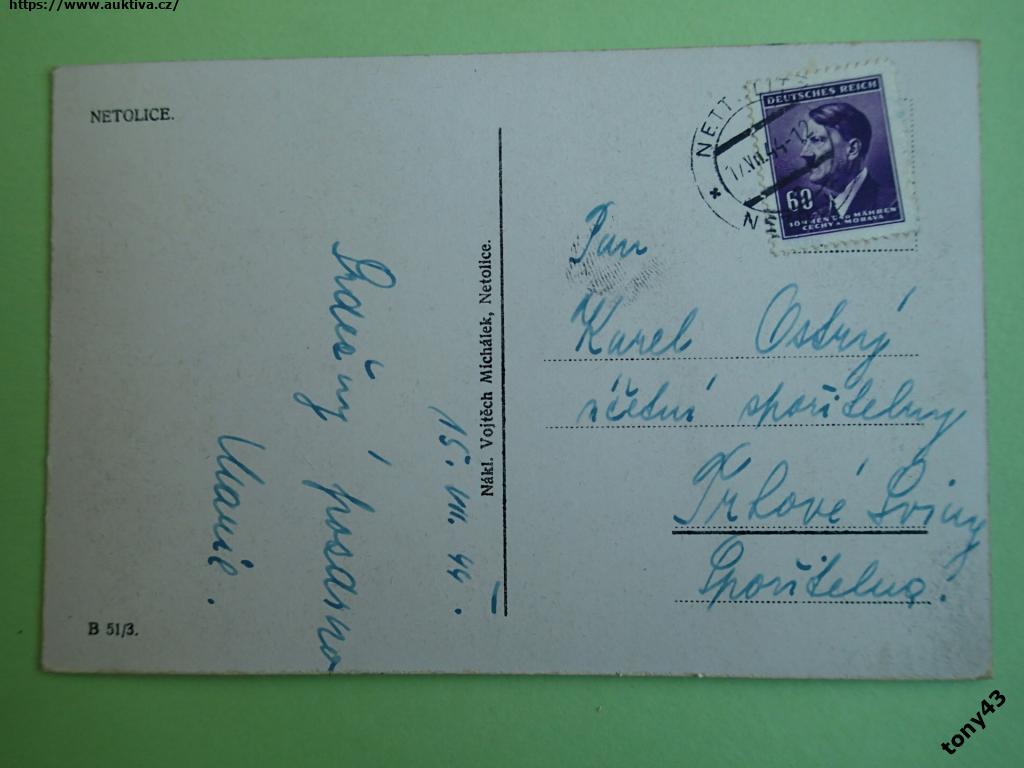 https://www.auktiva.cz/
NETOLICE.
Srdečný pozdrav
Marie.
15. VII. 44.
Nákl. Vojtěch Michálek, Netolice.
B 51/3.
NETT
17.VII.44-12
N
DEUTSCHES REICH
60
BÖHMEN UND MÄHREN
ČECHY A MORAVA
Pan
Karel Ostrý
účetní spořitelny
Trhové Sviny
Spořitelna.
tony43